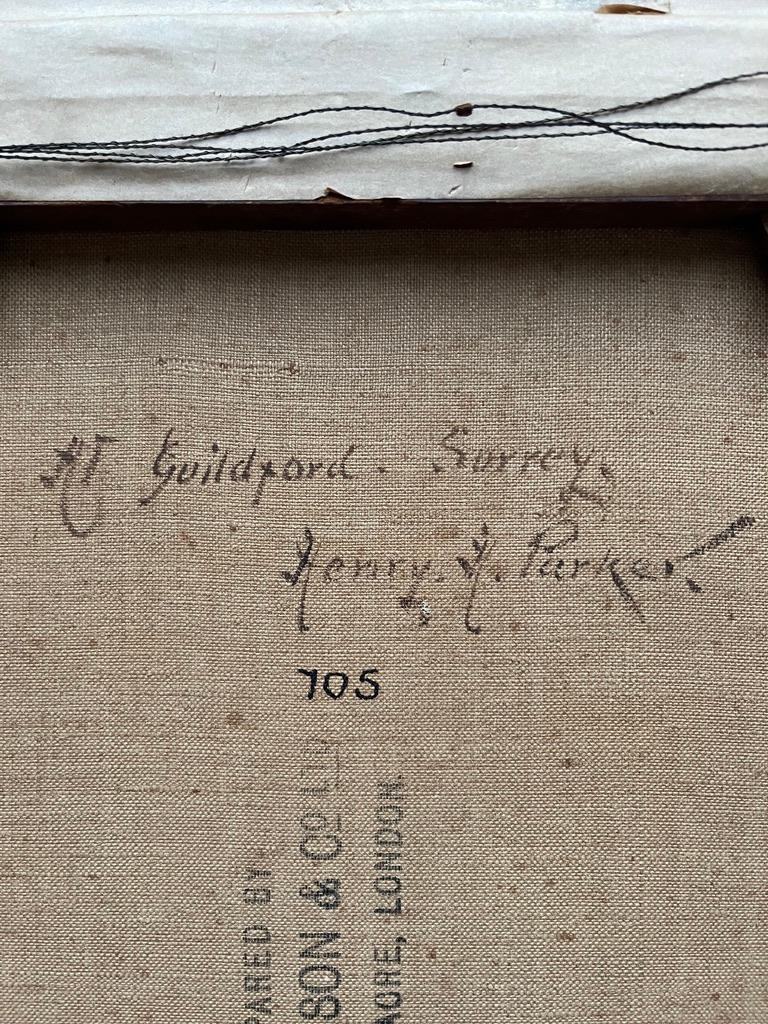 At Guildford. Surrey.
Henry. H. Parker.
705
PARED BY
SON & CO LTD
ACRE, LONDON.